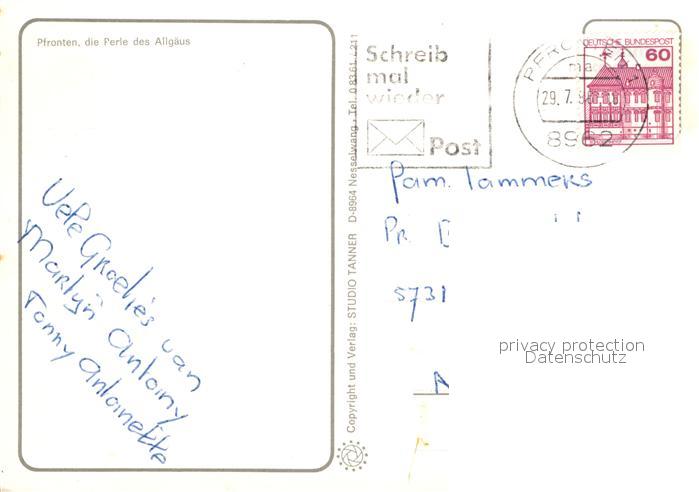 Pfronten, die Perle des Allgäus
Vele Groetjes van
Martijn Antoiny
Tonny Antoinette
Copyright und Verlag: STUDIO TANNER D-8964 Nesselwang · Tel. 08361 / 211
Schreib
mal
wieder
Post
PFRONTEN 1
ma
29. 7. 
8962
DEUTSCHE BUNDESPOST
60
Fam. Tammers
Pr.
5731
privacy protection
Datenschutz